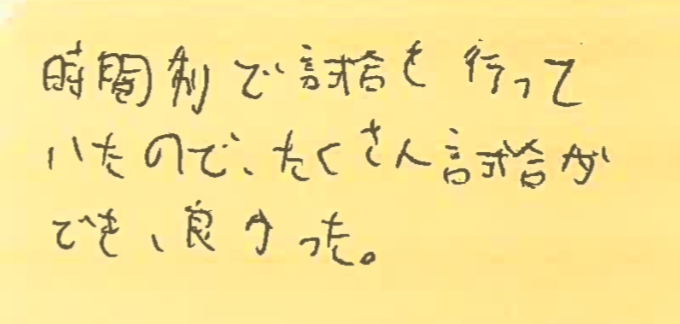 時間制で試合を行って
いたので、たくさん試合が
でき、良かった。